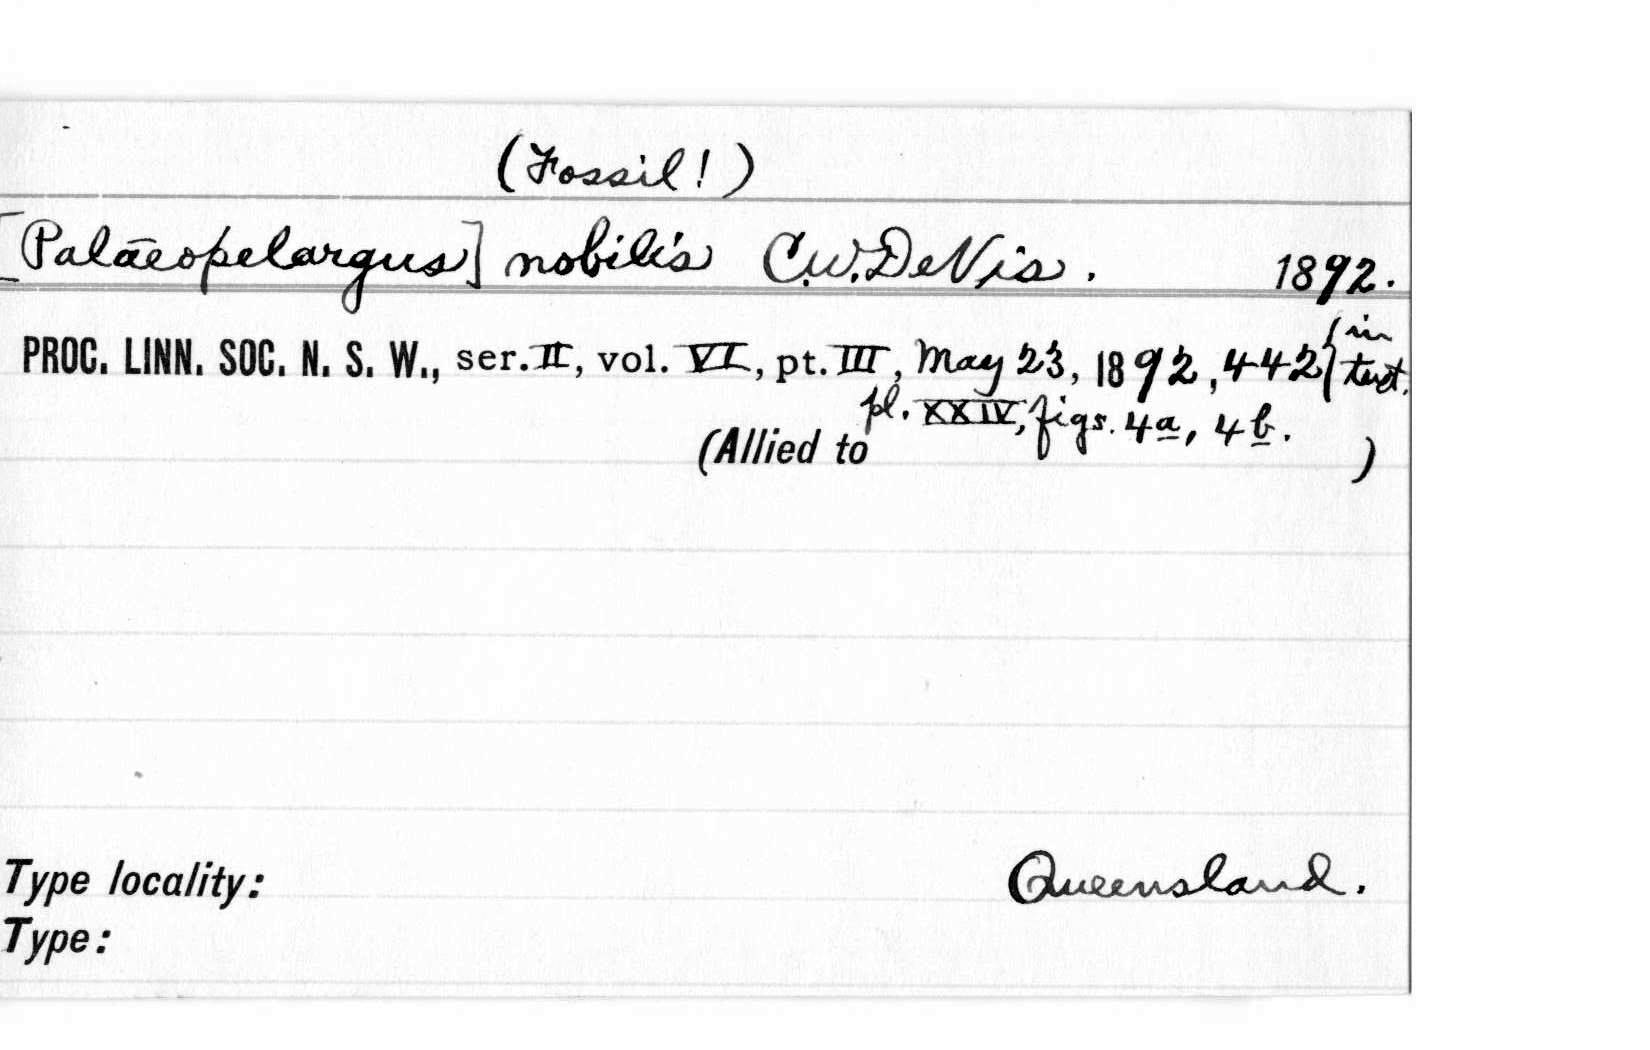 (Fossil!)
[Palaeopelargus] nobilis C.W.DeVis. 1892.
PROC. LINN. SOC. N. S. W., ser. II, vol. VI, pt. III, May 23, 1892, 442 (in text.
pl. XXIV, figs. 4a, 4b.
(Allied to )
Type locality: Queensland.
Type: